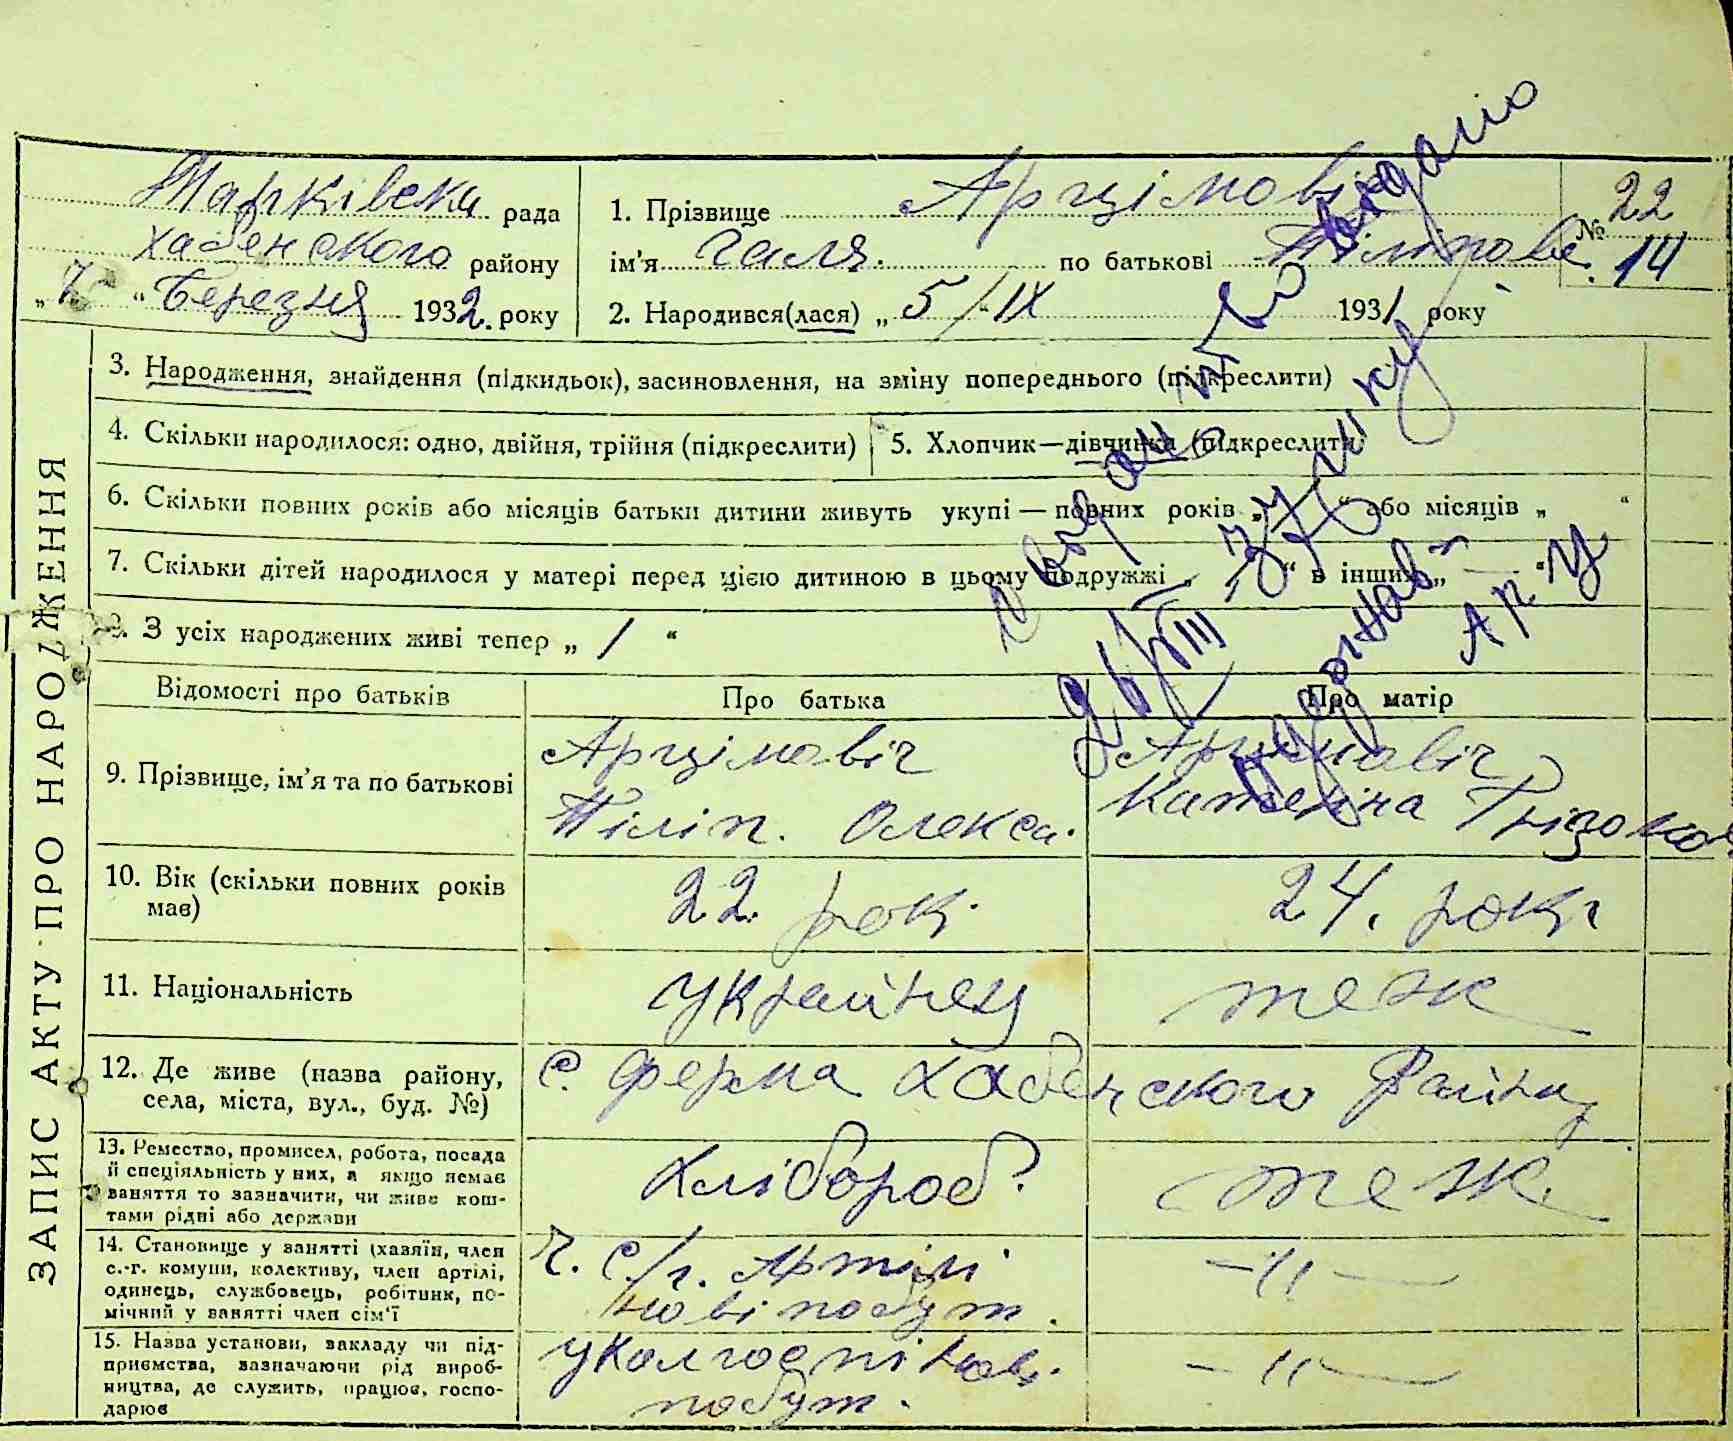 Марківска рада
хабенского району
„7“ Березня 1932. року
1. Прізвище Арцімовіч
ім'я Галя. по батькові Піліпове.
2. Народився(лася) „5/IX 1931 року
22
№ 14
ЗАПИС АКТУ ПРО НАРОДЖЕННЯ
3. Народження, знайдення (підкидьок), засиновлення, на зміну попереднього (підкреслити)
4. Скільки народилося: одно, двійня, трійня (підкреслити)
5. Хлопчик—дівчинка (підкреслити)
6. Скільки повних років або місяців батьки дитини живуть укупі — повних років „ “ або місяців „ “
7. Скільки дітей народилося у матері перед цією дитиною в цьому подружжі „ — “ в інших „ — “
8. З усіх народжених живі тепер „ 1 “
видано
Арц
Відомості про батьків
Про батька
Про матір
9. Прізвище, ім'я та по батькові
Арцімовіч
Піліп. Олекса.
Арцімовіч
Катеріна
10. Вік (скільки повних років
має)
22. рок.
24. роки
11. Національність
українец
теж
12. Де живе (назва району,
села, міста, вул., буд. №)
с. ферма хабенского Району
13. Ремество, промисел, робота, посада
й спеціяльність у них, а якщо немає
заняття то зазначити, чи живе кош-
тами рідні або держави
хлібороб.
теж.
14. Становище у занятті (хазяїн, член
с.-г. комуни, колективу, член артілі,
одинець, службовець, робітник, по-
мічний у занятті член сім'ї
Ч. с/г. Артілі
новіпобут.
—"—
15. Назва установи, закладу чи під-
приємства, зазначаючи рід вироб-
ництва, де служить, працює, госпо-
дарює
уколгоспі Нові.
побут.
—"—